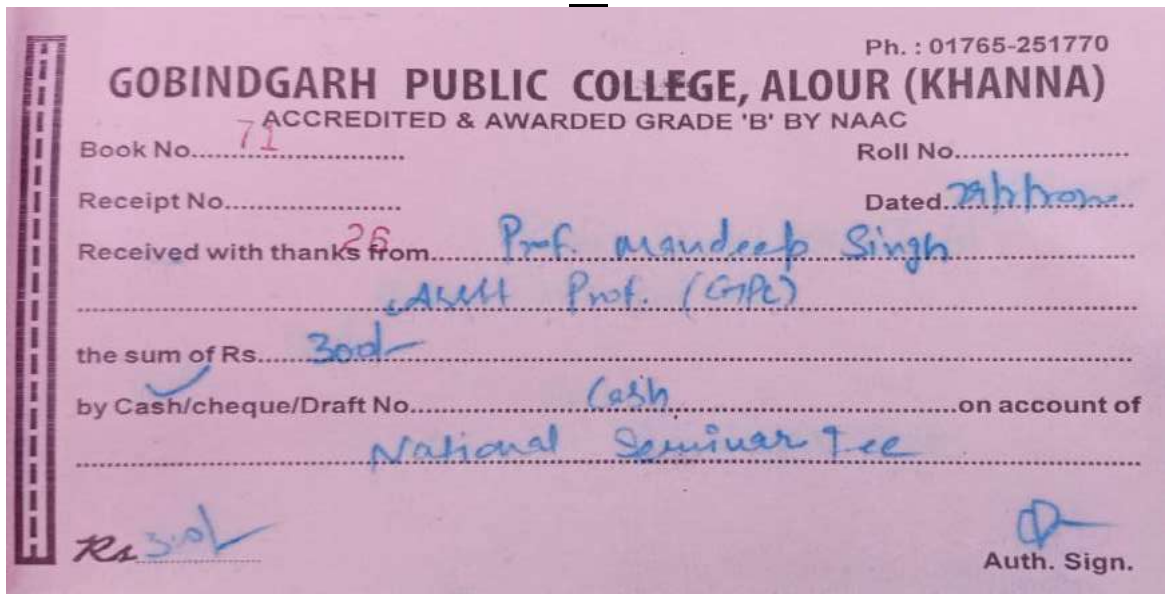 Ph. : 01765-251770
GOBINDGARH PUBLIC COLLEGE, ALOUR (KHANNA)
ACCREDITED & AWARDED GRADE 'B' BY NAAC
Book No. 71 Roll No.
Receipt No. Dated
26
Received with thanks from Prof. Mandeep Singh
Asstt Prof. (GPC)
the sum of Rs. 300/-
by Cash/cheque/Draft No. Cash on account of
National Seminar Fee
Rs 300/-
Auth. Sign.